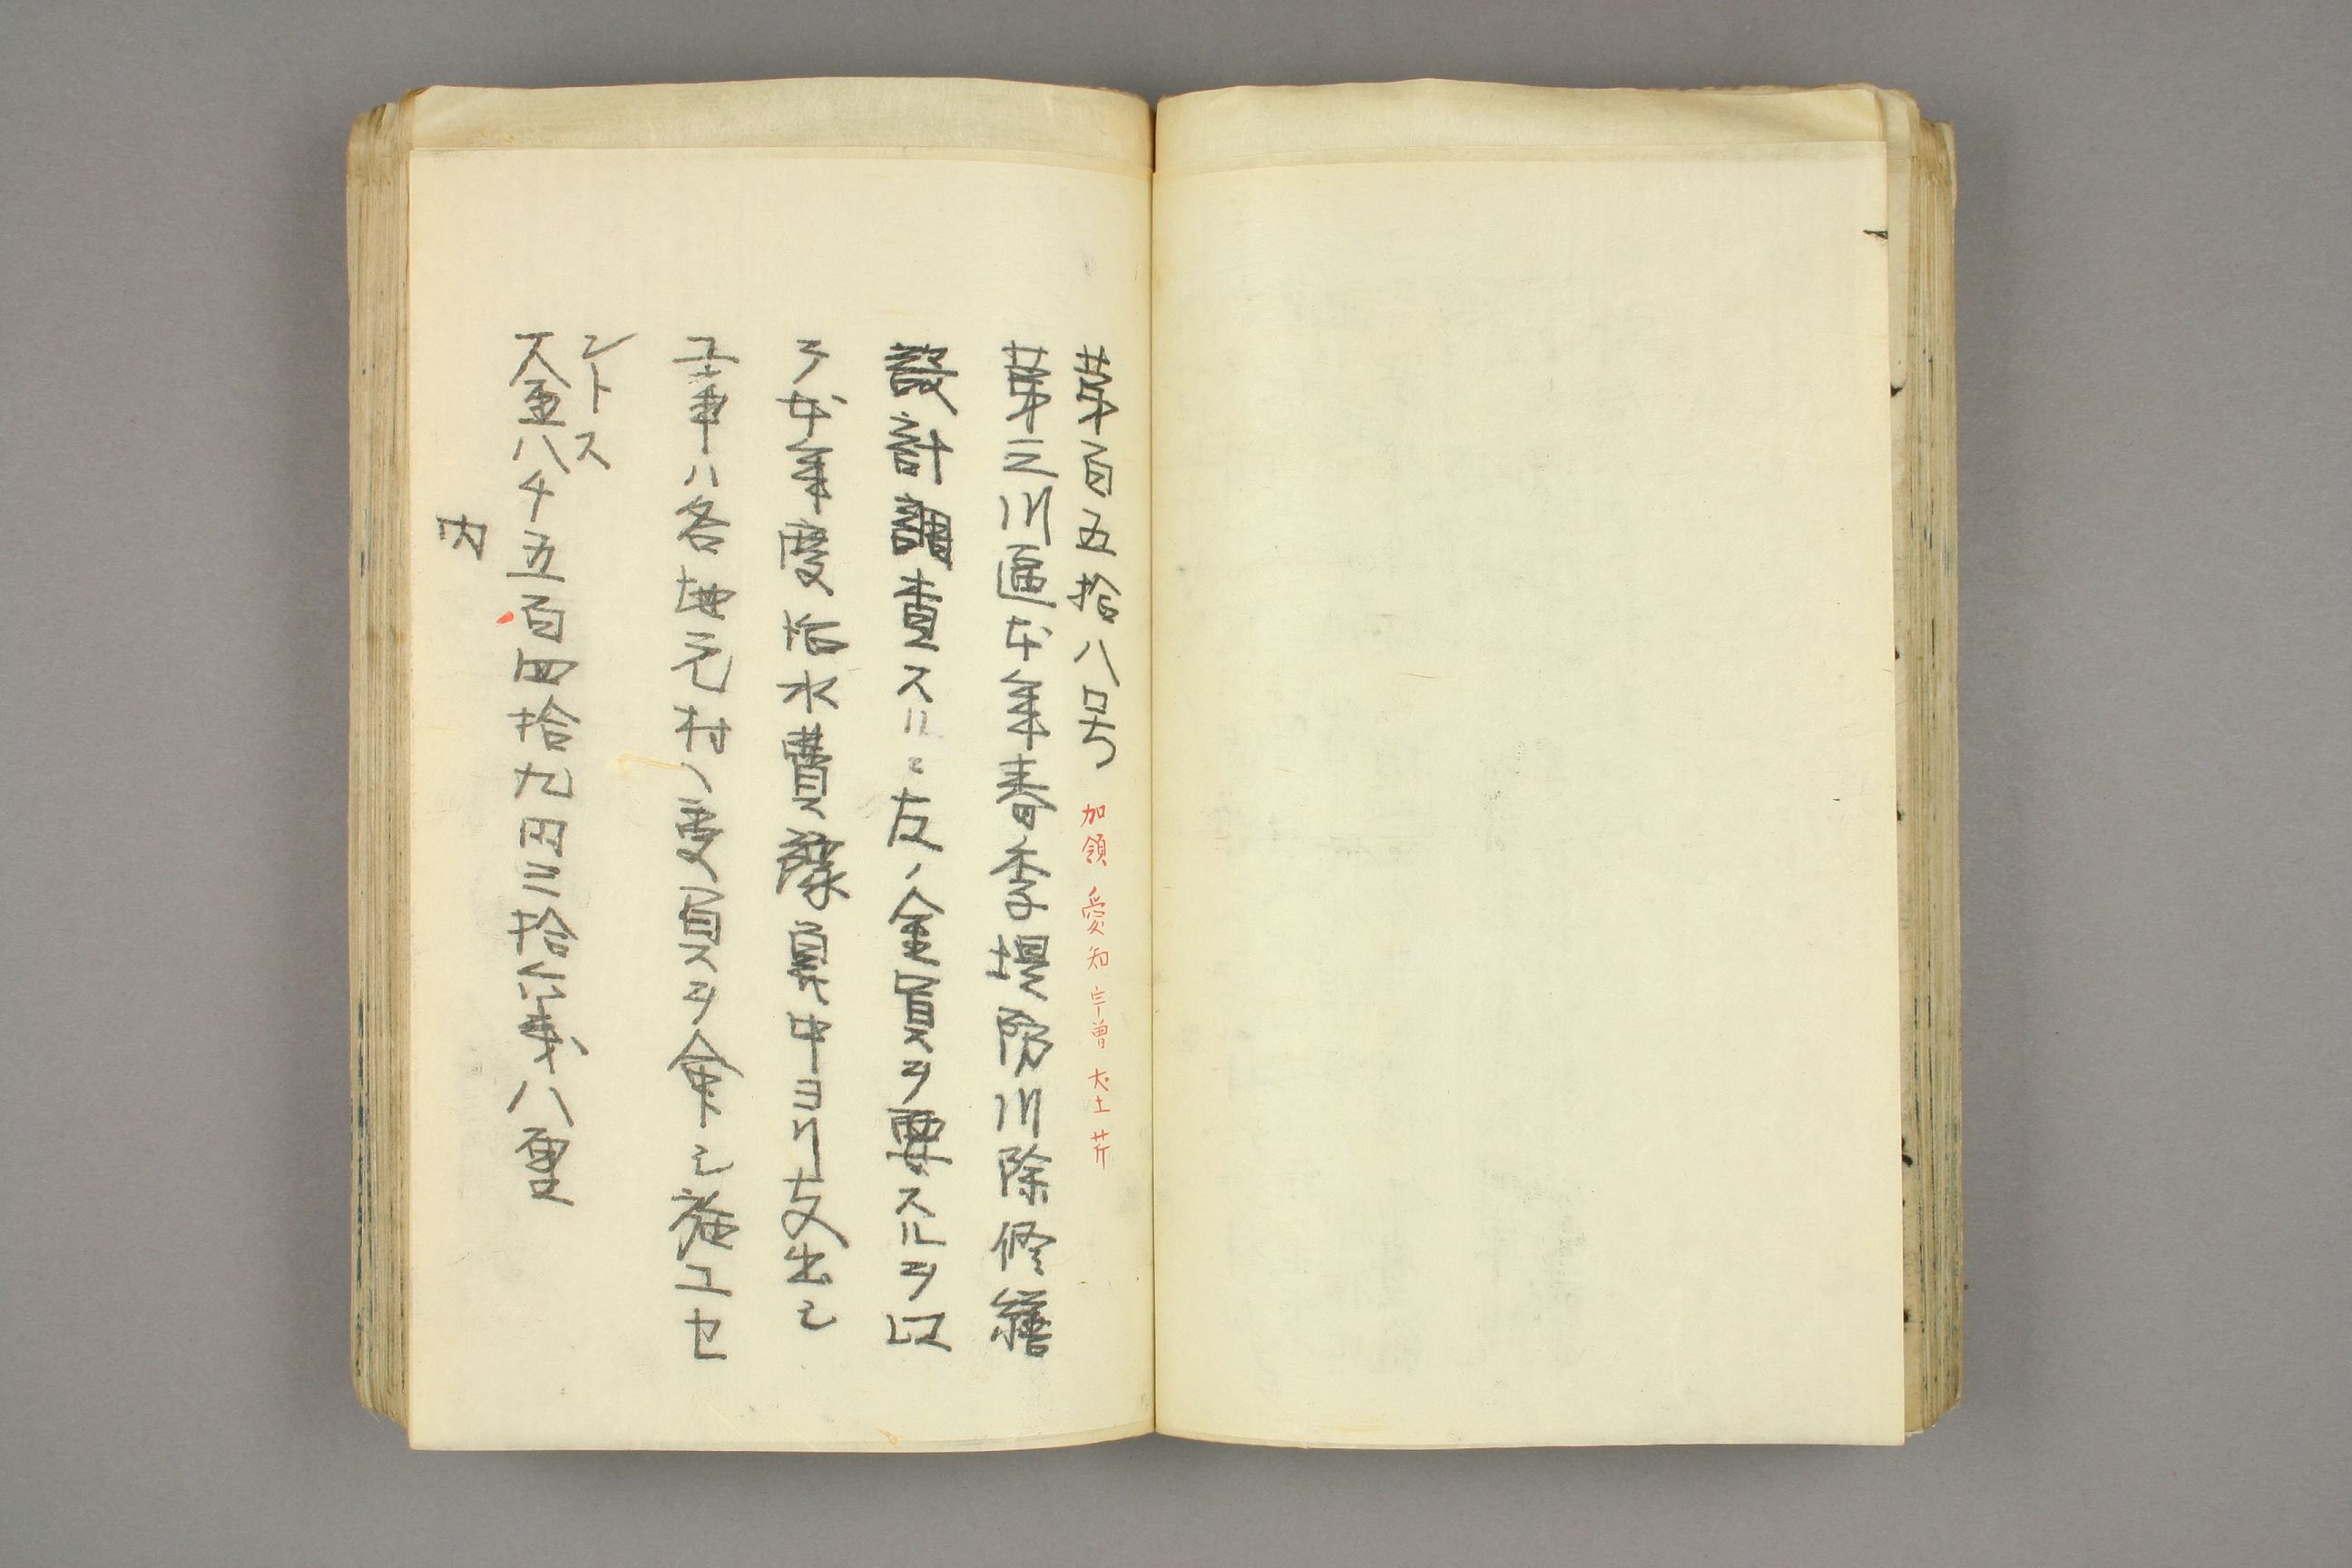 第百五拾八号 加領 愛知 宇曽 犬上 芹
第三川区本年春季堤防川除修繕
設計調査スルニ左ノ金員ヲ要スルヲ以
テ本年度治水費予算中ヨリ支出シ
工事ハ各地元村ノ受負ヲ命シ施工セ
ントス
一金八千五百四拾九円三拾六銭八厘
内